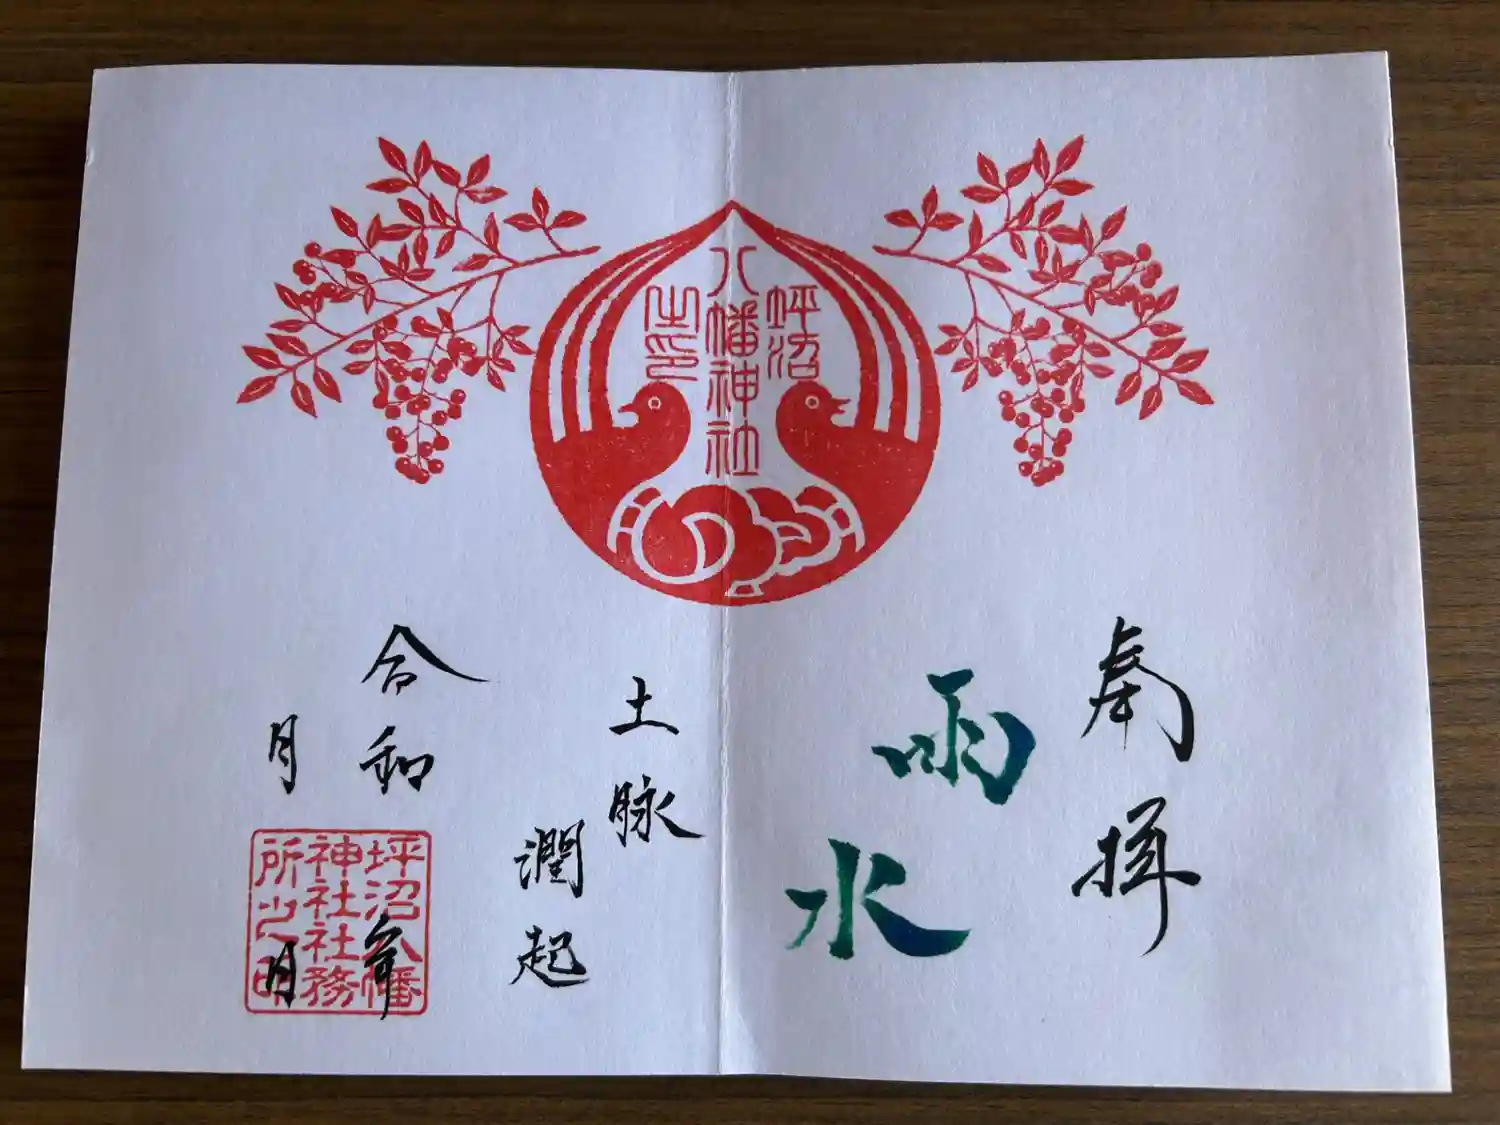 坪沼
八幡神社
之印
奉拝
雨水
土脉
潤起
令和 年
月 日
坪沼八幡
神社社務
所之印